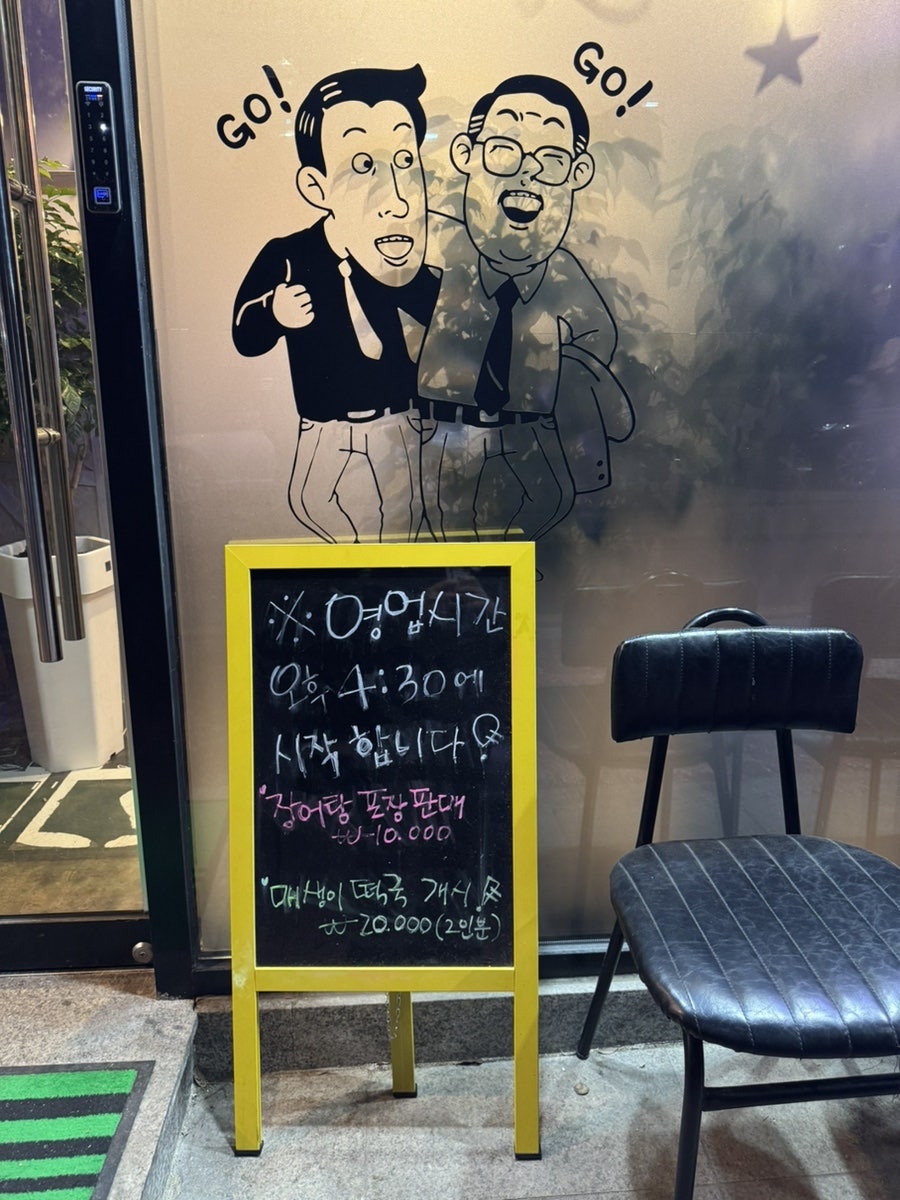 GO!
GO!
SECURITY
※ 영업시간
오후 4:30에
시작 합니다
장어탕 포장판매
₩10.000
매생이 떡국 개시
₩20.000 (2인분)